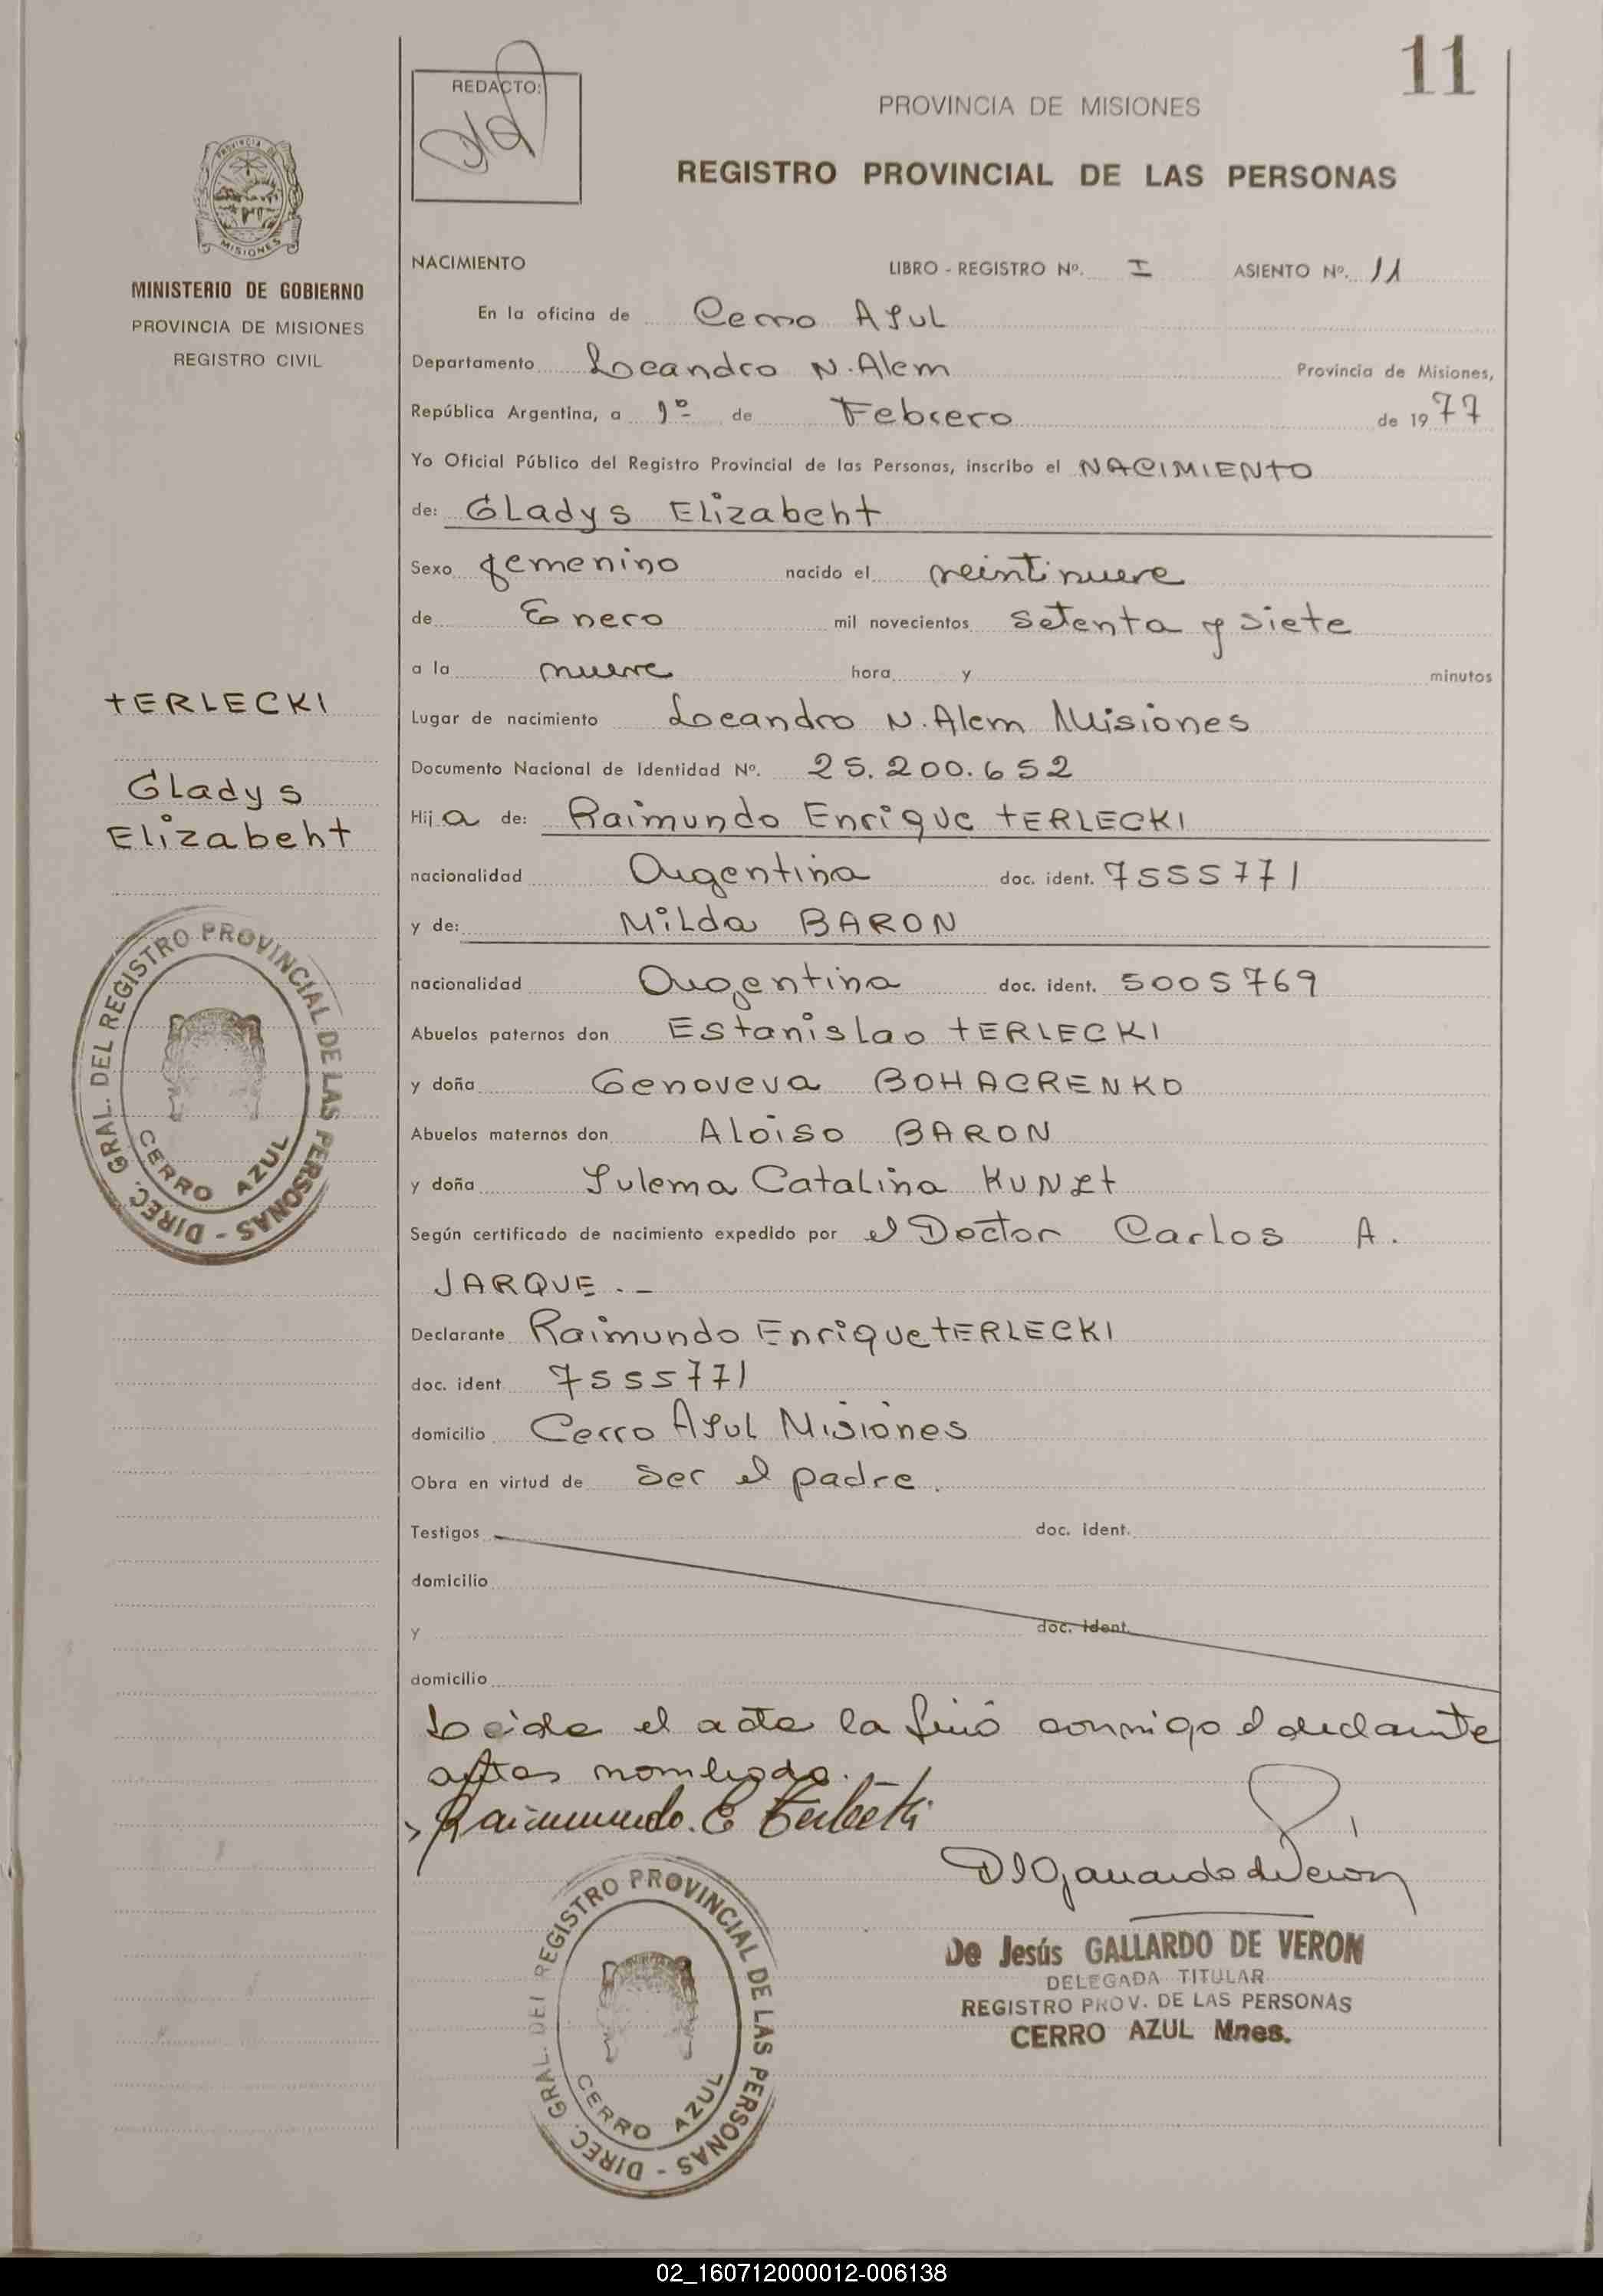 11
REDACTO:
PROVINCIA DE MISIONES
REGISTRO PROVINCIAL DE LAS PERSONAS
PROVINCIA DE
MISIONES
MINISTERIO DE GOBIERNO
PROVINCIA DE MISIONES
REGISTRO CIVIL
NACIMIENTO LIBRO - REGISTRO Nº. I ASIENTO Nº. 11
En la oficina de Cerro Azul
Departamento Leandro N. Alem Provincia de Misiones,
República Argentina, a 1º de Febrero de 1977
Yo Oficial Público del Registro Provincial de las Personas, inscribo el NACIMIENTO
de: Gladys Elizabeht
Sexo femenino nacido el veintinueve
de Enero mil novecientos setenta y siete
a la nueve hora y minutos
TERLECKI
Gladys
Elizabeht
Lugar de nacimiento Leandro N. Alem Misiones
Documento Nacional de Identidad Nº. 25.200.652
Hija de: Raimundo Enrique TERLECKI
nacionalidad Argentina doc. ident. 7555771
y de: Milda BARON
nacionalidad Argentina doc. ident. 5005769
Abuelos paternos don Estanislao TERLECKI
y doña Genoveva BOHACRENKO
Abuelos maternos don Aloiso BARON
y doña Zulema Catalina KUNZT
Según certificado de nacimiento expedido por el Doctor Carlos A.
JARQUE.-
Declarante Raimundo Enrique TERLECKI
doc. ident 7555771
domicilio Cerro Azul Misiones
Obra en virtud de ser el padre.
Testigos doc. ident.
domicilio
y doc. ident.
domicilio
Leída el acta la firmó conmigo el declarante
antes nombrado.
Raimundo. E Terlecki
DIREC. GRAL. DEL REGISTRO PROVINCIAL DE LAS PERSONAS -
CERRO AZUL
DIREC. GRAL. DEL REGISTRO PROVINCIAL DE LAS PERSONAS -
CERRO AZUL
De Jesús GALLARDO DE VERON
DELEGADA TITULAR
REGISTRO PROV. DE LAS PERSONAS
CERRO AZUL Mnes.
02_160712000012-006138